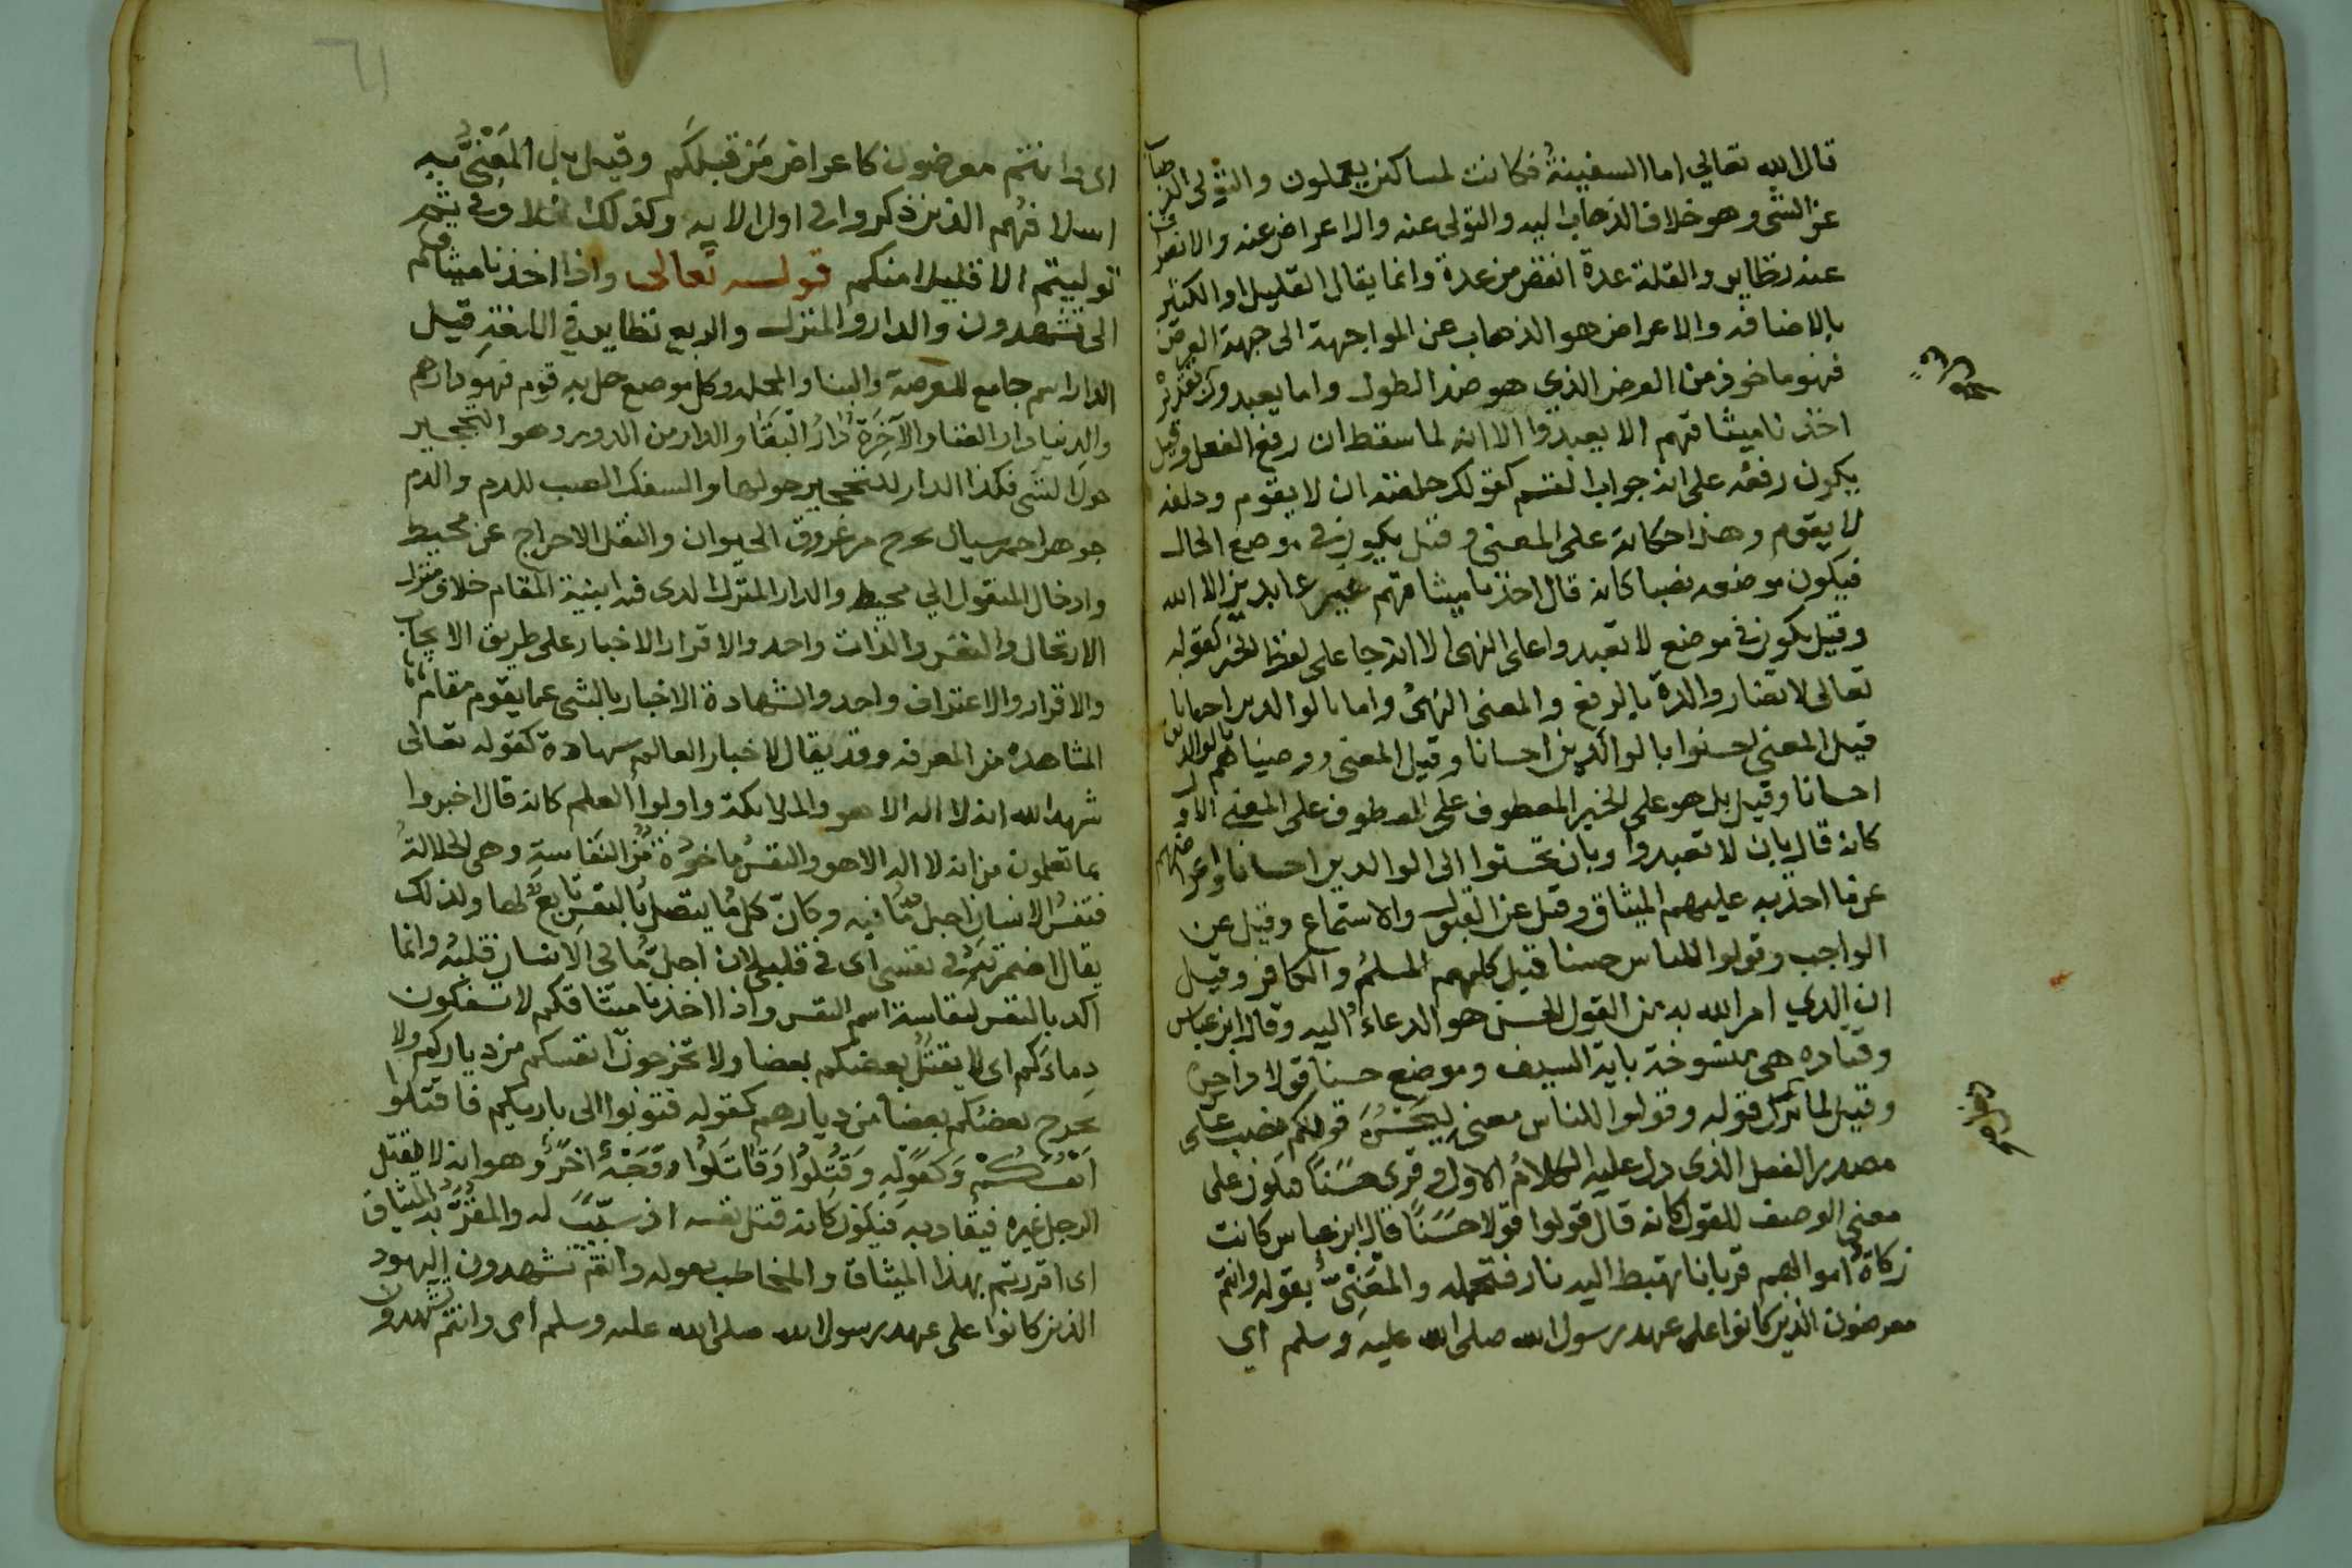 قال الله تعالى اما السفينة فكانت لمساكين يعملون والتولي الذهاب
عن الشي وهو خلاف الذهاب اليه والتولى عنه والاعراض عنه والانصراف
عنه نظاير والقلة عدة انقص من عدة وانما يقال القليل او الكثير
بالاضافه والاعراض هو الذهاب عن المواجهة الى جهة العرض
فهو ماخوذ من العرض الذي هو ضد الطول واما يعبدون تقديره
اخذنا ميثاقهم الا يعبدوا الا انه لما سقط ان رفع الفعل وقيل
يكون رفعه على انه جواب القسم كقولك حلفته ان لا يقوم وحلفه
لا يقوم وهذا حكاية على المعنى وقيل يكون في موضع الحال
فيكون موضعه نصبا كانه قال اخذنا ميثاقهم غير عابدين الا الله
وقيل يكون في موضع لا تعبدوا على النهى الا انه جا على لفظ الخبر كقوله
تعالى لا تضار والدة بالرفع والمعنى النهى واما بالوالدين احسانا
قيل المعنى احسنوا بالوالدين احسانا وقيل المعنى ووصيناهم بالوالدين
احسانا وقيل بل هو على الخبر المعطوف على المعطوف على المعنى الاول
كانه قال بان لا تعبدوا وبان تحسنوا الى الوالدين احسانا واعراضهم
عن ما اخذ به عليهم الميثاق وقيل عن القبول والاستماع وقيل عن
الواجب وقولوا للناس حسنا قيل كلهم المسلم والكافر وقيل
ان الذي امر الله به من القول الحسن هو الدعاء اليه وقال ابن عباس
وقتاده هى منسوخة باية السيف وموضع حسنا قولا ذا حسن
وقيل لما نزل قوله وقولوا للناس معنى ليحسن قولكم نصب على
مصدر الفعل الذي دل عليه الكلام الاول وقرى حسنا فيكون على
معنى الوصف للقول كانه قال قولوا قولا حسنا قال ابن عباس كانت
زكاة اموالهم قربانا تهبط اليه نار فتحمله والمعنى بقوله وانتم
معرضون الذين كانوا على عهد رسول الله صلى الله عليه وسلم اي
٦١
اى وانتم معرضون كاعراض من قبلكم وقيل بل المعنى به
اسلافهم الذين ذكروا فى اول الايه وكذلك فى ثم
توليتم الا قليلا منكم قوله تعالى واذ اخذنا ميثاقكم
الى تشهدون والدار والمنزل والربع نظاير في اللغة قيل
الدار اسم جامع للعرصة والبنا والمحله وكل موضع حل به قوم فهو دارهم
والدنيا دار الفنا والآخرة دار البقا والدار من الدور وهو التحجير
حول الشى فكذا الدار للتحجير حولها والسفك الصب للدم والدم
جوهر احمر سيال يخرج من عروق الحيوان والنقل الاخراج عن محيط
وادخال المنقول الي محيط والدار المنزل الذى فيه ابنية المقام خلاف منزل
الارتحال والنفس والذات واحد والاقرار الاخبار على طريق الايجاب
والاقرار والاعتراف واحد والشهادة الاخبار بالشى عما يقوم مقام
المشاهدة من المعرفه وقد يقال لاخبار العالم شهادة كقوله تعالى
شهد الله انه لا اله الا هو والملايكة واولوا العلم كانه قال اخبروا
بما تعلمون من انه لا اله الا هو والنفس ماخوذة من النفاسة وهى الجلالة
فنفس الانسان اجل ما فيه وكان كل ما يتصل بالنفس تابع لها ولذلك
يقال اضمرته في نفسى اى فى قلبي لان اجل ما في الانسان قلبه وانما
اكد بالنفس لنفاسة اسم النفس واذ اخذنا ميثاقكم لا تسفكون
دماءكم اى لا يقتل بعضكم بعضا ولا تخرجون انفسكم من دياركم ولا
يخرج بعضكم بعضا من ديارهم كقوله فتوبوا الى باريكم فاقتلوا
انفسكم وكقوله وقتلوا وقاتلوا وقجه اخر وهو انه لا يقتل
الرجل غيره فيقاد به فيكون كانه قتل نفسه اذ سبب له والمقر به الميثاق
اى اقررتم بهذا الميثاق والمخاطب بقوله وانتم تشهدون اليهود
الذين كانوا على عهد رسول الله صلى الله عليه وسلم اى وانتم تشهدون